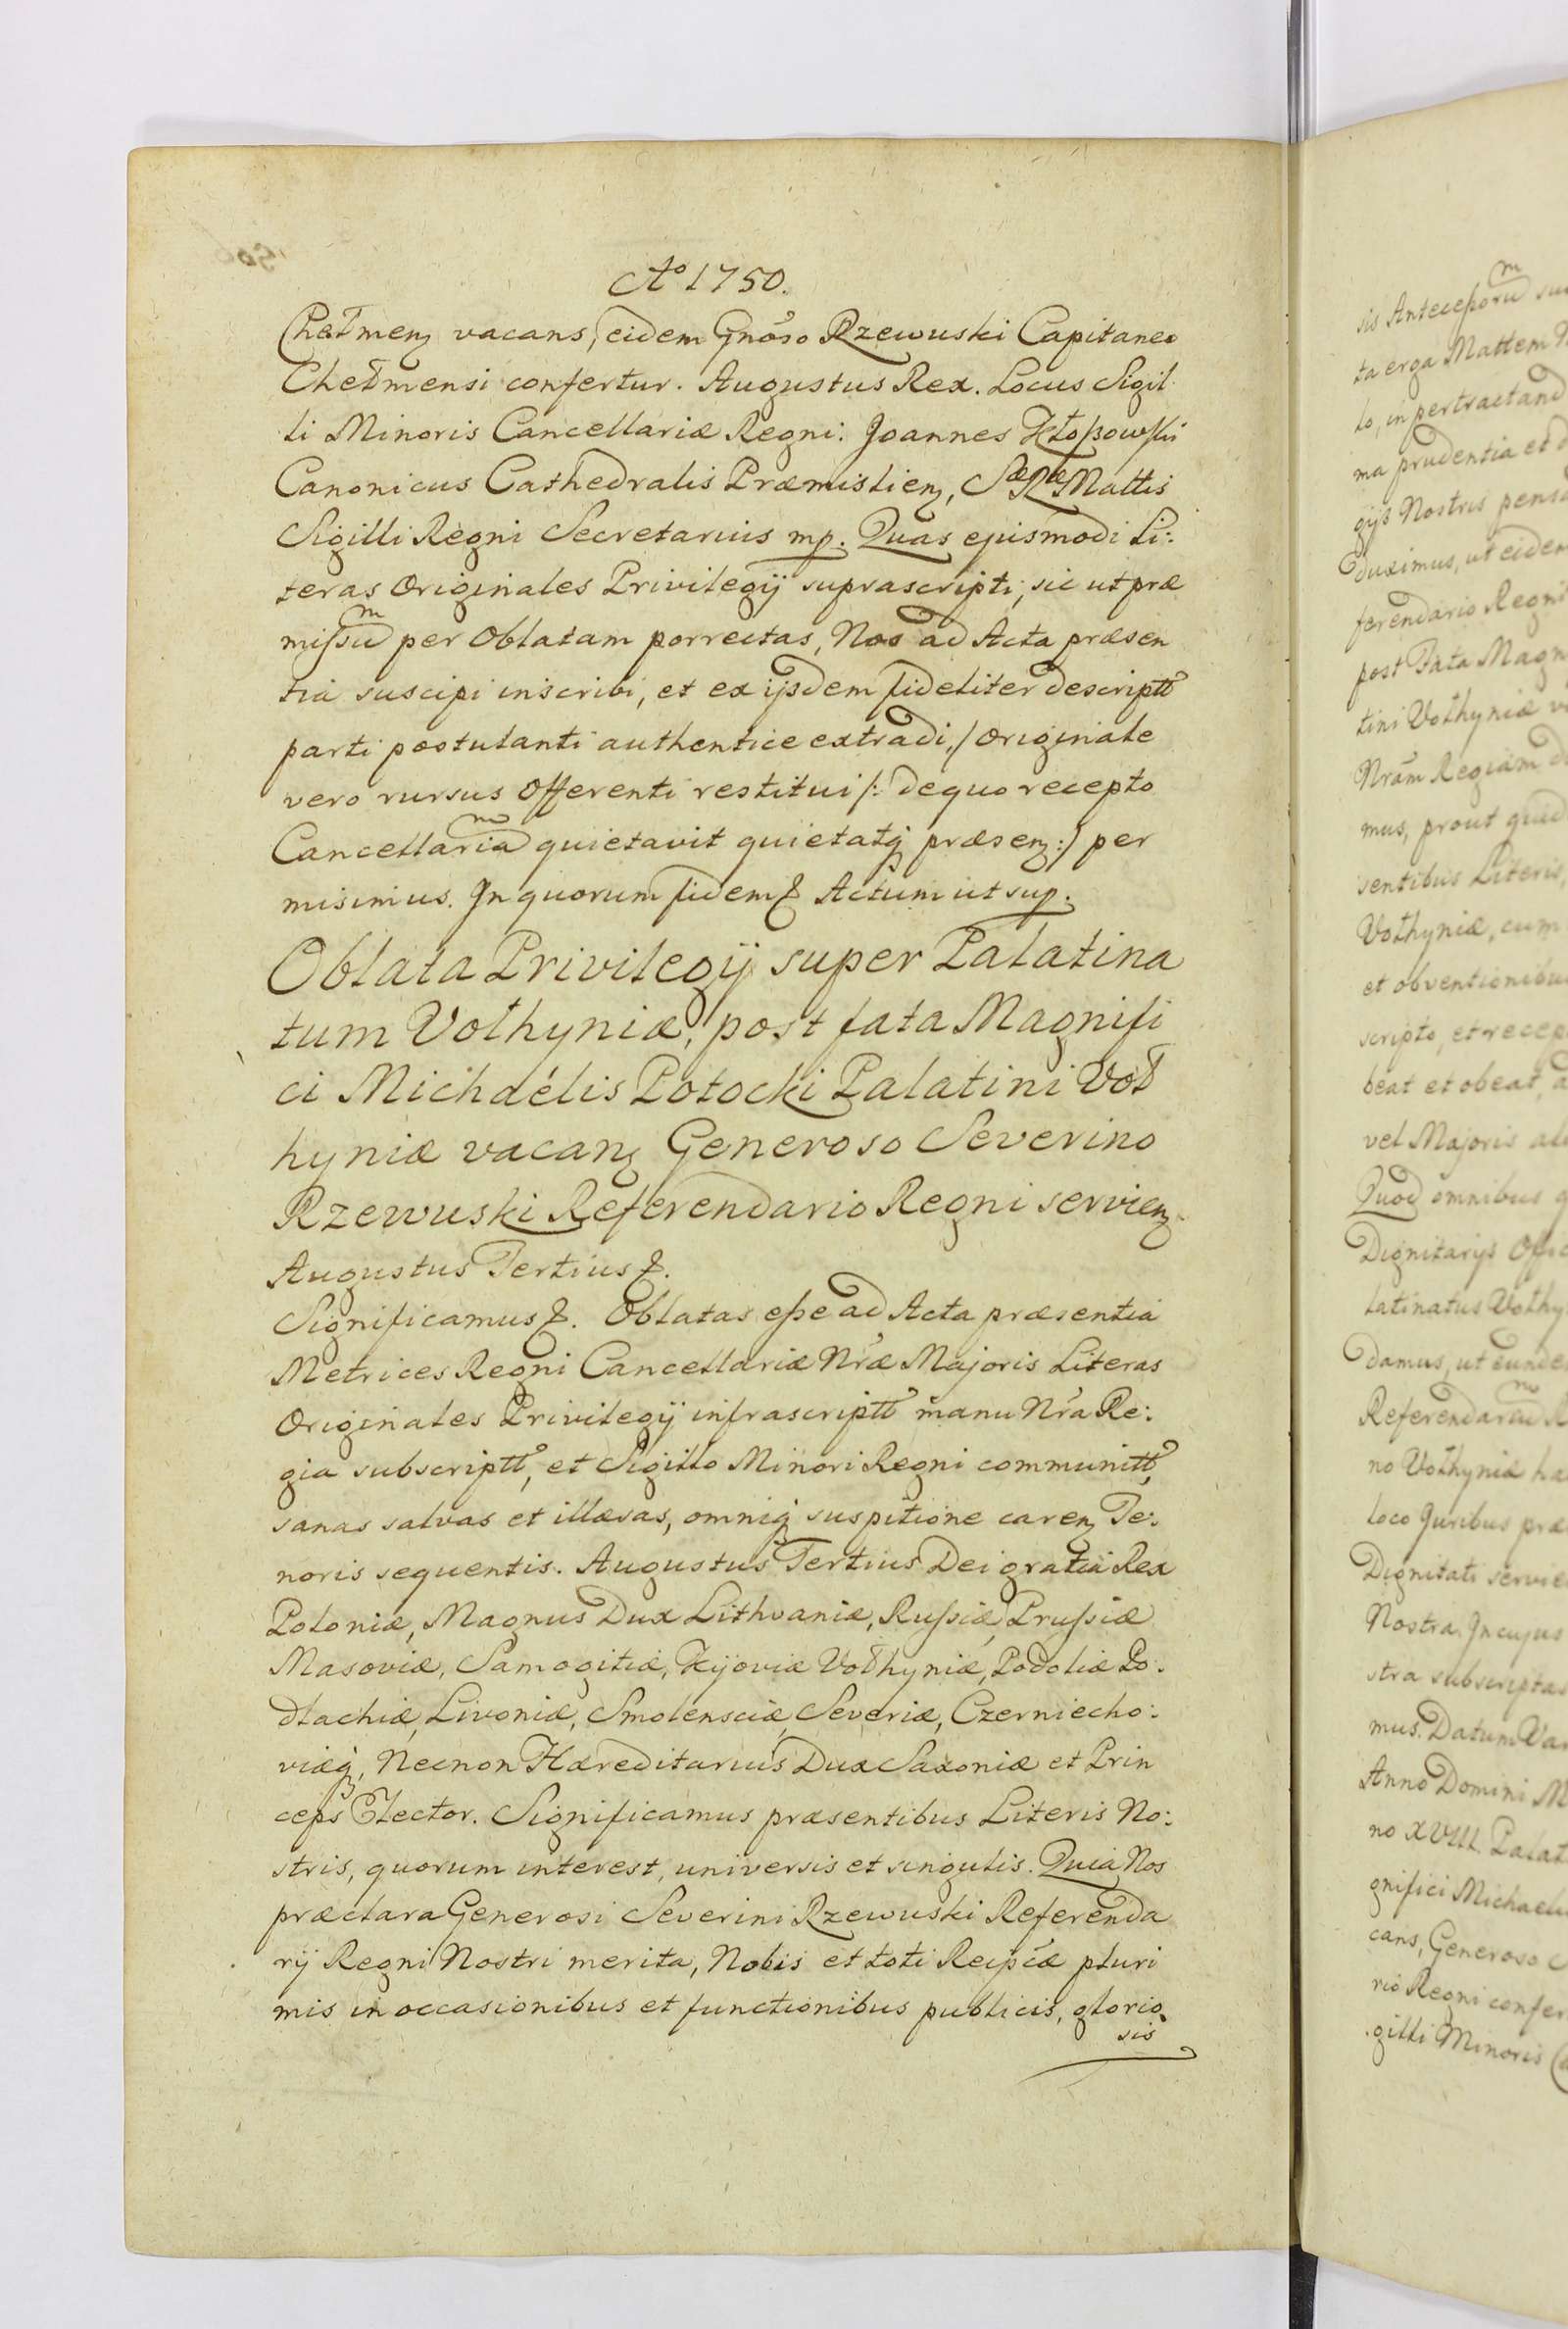 Aº 1750.
Chełmeń vacans, eidem Gnôso Rzewuski Capitaneo
Chełmensi confertur. Augustus Rex. Locus Sigil
li Minoris Cancellariæ Regni. Joannes Kłoßowski
Canonicus Cathedralis Præmislień, Sæ Ræ Mattis
Sigilli Regni Secretarius mp. Quas ejusmodi Li:
teras Originales Privilegij suprascripti, sic ut præ
missum per Oblatam porrectas, Nos ad Acta præsen
tia suscipi inscribi, et ex ijsdem fideliter descriptt
parti postulanti authentice extradi, /originale
vero rursus Offerenti restitui /: de quo recepto
Cancellariam quietavit quietatq præseń:/ per
misimus. In quorum fidem &. Actum ut sup.
Oblata Privilegij super Palatina
tum Volhyniæ, post fata Magnifi
ci Michaélis Potocki Palatini Vol
hyniæ vacań Generoso Severino
Rzewuski Referendario Regni servień.
Augustus Tertius &.
Significamus &. Oblatas esse ad Acta præsentia
Metrices Regni Cancellariæ Nræ Majoris Literas
Originales Privilegij infrascriptt manu Nra Re:
gia subscriptt, et Sigillo Minori Regni communitt,
sanas salvas et illæsas, omniq suspitione careń Te:
noris sequentis. Augustus Tertius Dei gratia Rex
Poloniæ, Magnus Dux Lithvaniæ, Russiæ, Prussiæ
Masoviæ, Samogitiæ, Kijoviæ Volhyniæ, Podoliæ Po:
dlachiæ, Livoniæ, Smolensciæ, Severiæ, Czerniecho:
viæq, Necnon Hæreditarius Dux Saxoniæ et Prin
ceps Elector. Significamus præsentibus Literis No:
stris, quorum interest, universis et singulis. Quia Nos
præclara Generosi Severini Rzewuski Referenda
rij Regni Nostri merita, Nobis et toti Reipcæ pluri
mis in occasionibus et functionibus publicis, glorio
sis
sis Antecessorum
ta erga Mattem
to, in pertractand
ma prudentia et
gijs Nostris
duximus, ut eidem
ferendario Regni
post Fata Magn
tini Volhyniæ
Nram Regiam
mus, prout quid
sentibus Literis,
Volhyniæ, cum
et obventionibus
scripto, et recep
beat et obeat,
vel Majoris
Quod omnibus
Dignitarijs Offic
latinatus Volhy
damus, ut eunde
Referendarium
no Volhyniæ ha
loco Juribus præ
Dignitati servie
Nostra. In cujus
stra subscriptas
mus. Datum Var
Anno Domini M
no XVIII. Palat
gnifici Michaelis
cans, Generoso
rio Regni confer
gilli Minoris